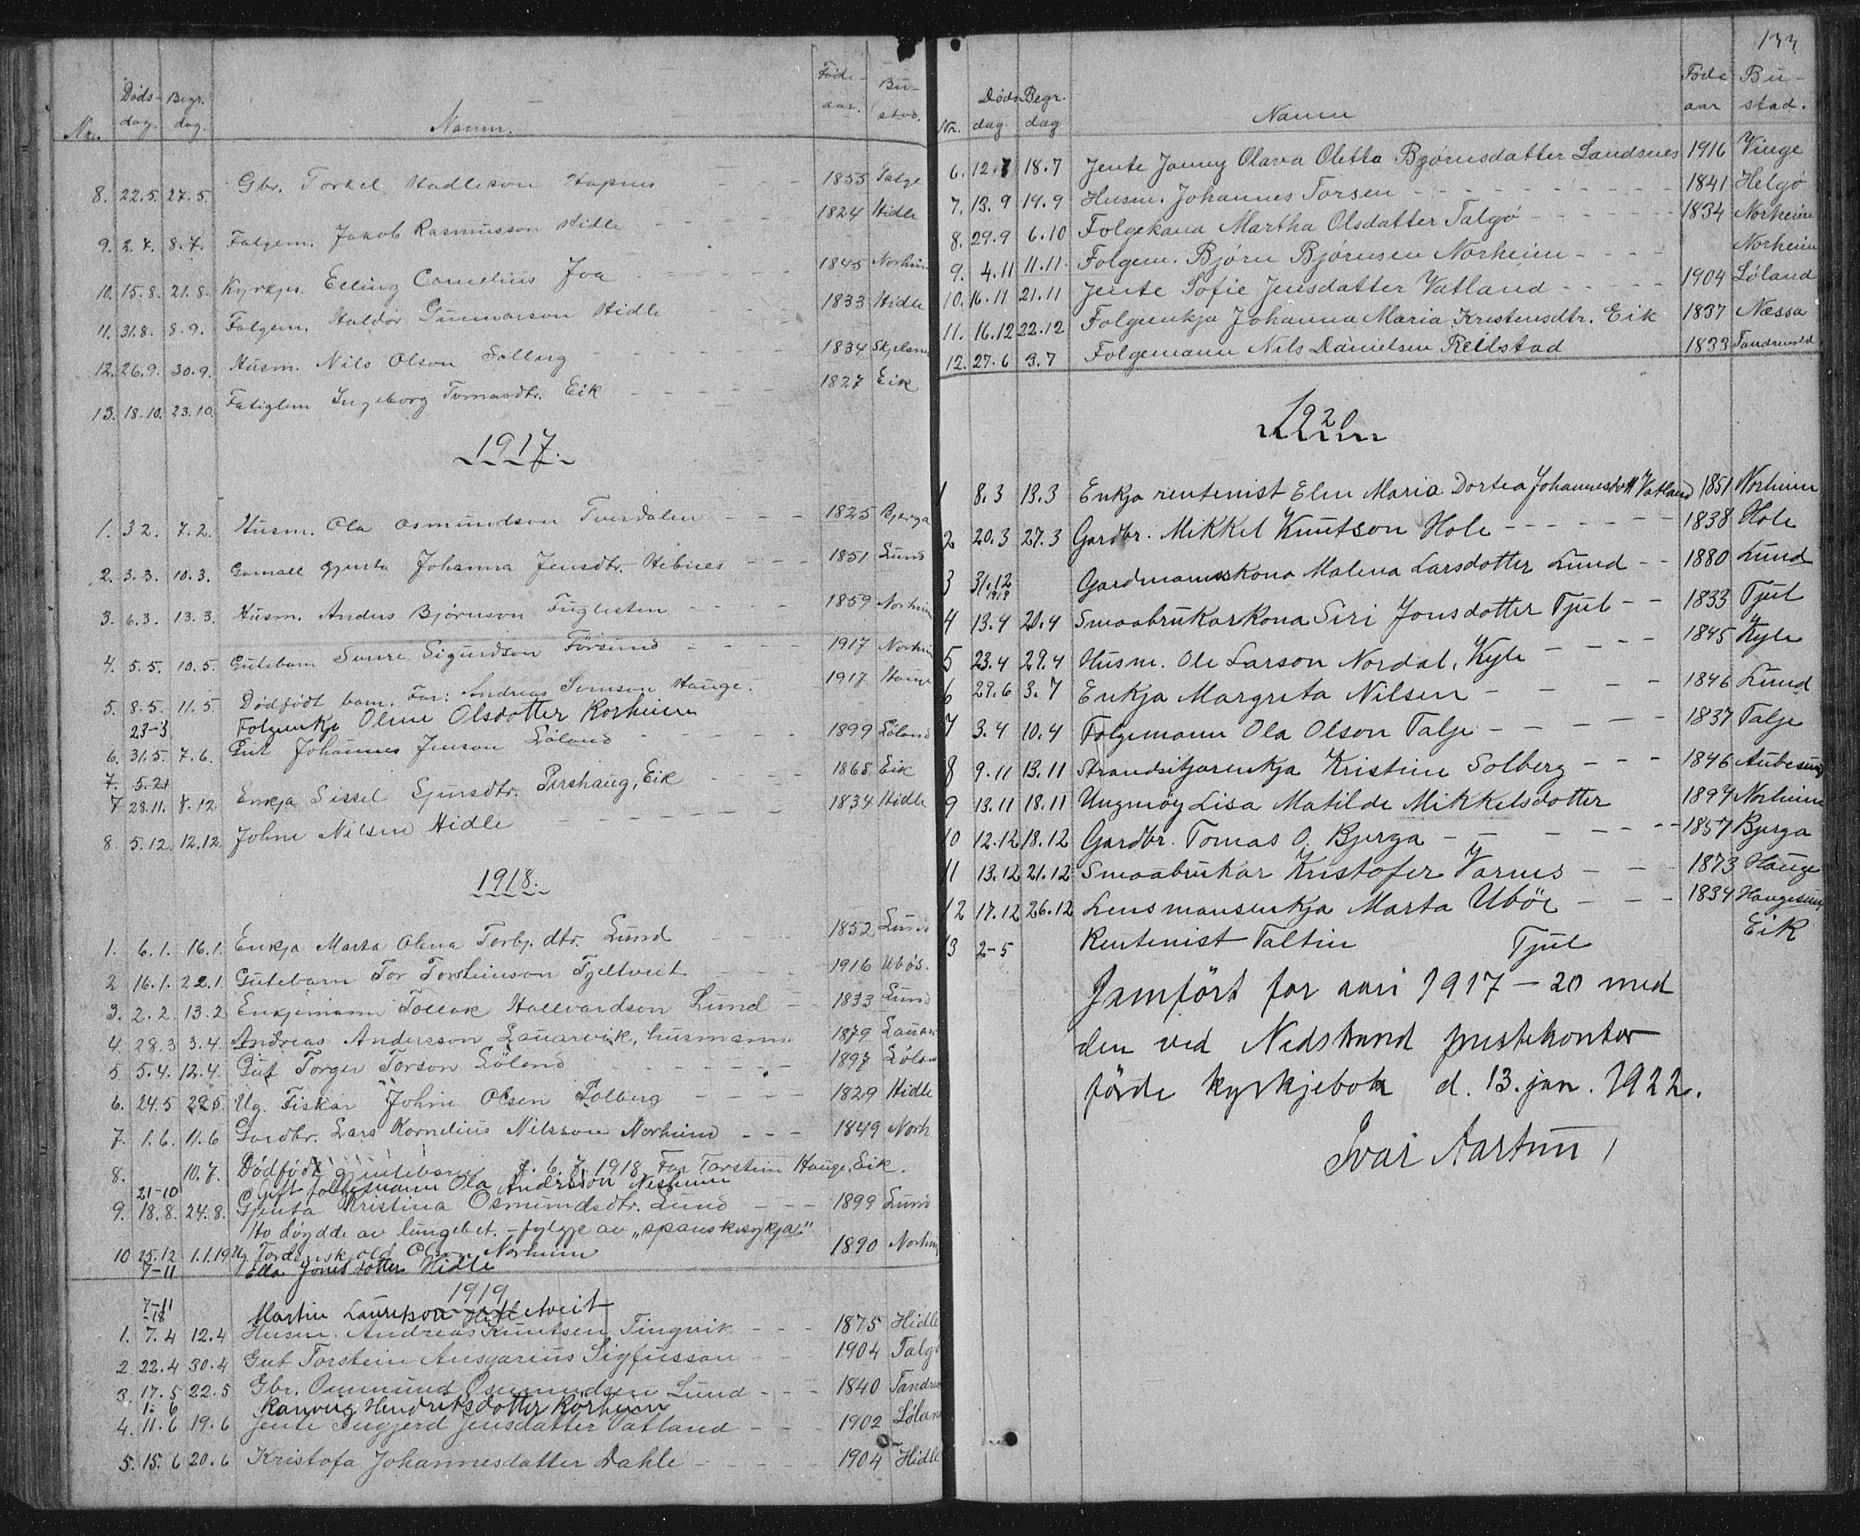 Nr. Døds-dag. Begr. dag. Namn. Føde-aar. Bu-stad.
8. 22.5. 27.5. Gbr. Torkel Hadleson 1855 Talge
9. 2.7. 8.7. Folgem. Jakob Rasmusson Hidle 1824 Hidle
10. 15.8. 21.8. Kyrkjes. Elling Cornelius Joa 1845 Norheim
11. 31.8. 8.9. Folgem. Haldor Gunnarson Hidle 1833 Hidle
12. 26.9. 30.9. Husm. Nils Olson Solberg 1834
13. 18.10. 23.10. Fatiglem Ingeborg Tomasdtr. Eik 1827 Eik
1917.
1. 3.2. 7.2. Husm. Ola Osmundson Tverdalen 1825 Bjerga
2. 3.3. 10.3. Gamall gjenta Johanna Jensdtr. Hebnes 1851 Lund
3. 6.3. 13.3. Husm. Anders Bjørnson Fuglesten 1859 Norheim
4. 5.5. 10.5. Gutebarn Sverre Sigurdson Førsund 1917 Norheim
5. 8.5. 11.5. Dødfødt barn. Far: Andreas Simson Hauge. 1917 Hauge
23-3 Folgeenkje Oline Olsdotter Norheim
6. 31.5. 7.6. Gut Johannes Jenson Løland 1899 Løland
7. 5.21
7 28.11. 8.12 Enkja Sissel Sjursdtr. Pershaug, Eik 1868 Eik
8. 5.12. 12.12. Johne Nilsen Hidle 1834 Hidle
1918.
1. 6.1. 16.1. Enkja Marta Olena Torbj.dtr. Lund 1852 Lund
2 16.1. 22.1. Gutebarn Tor Torsteinson Tjeltveit 1916 Ubøs.
3. 2.2. 13.2 Enkjemann Tollak Hallvardson Lund 1833 Lund
4. 28.3 3.4. Andreas Anderson Lauarvik, husmann 1879
5 5.4. 12.4. Gut Torger Torson Løland 1897 Løland
6. 24.5 29.5. Ug. Fiskar Johne Olsen Solberg 1829 Hidle
7. 1.6. 11.6. Gardbr. Lars Kornelius Nilsson Norheim 1849 Norh
8. 10.7. Dødfødt gjentebarn f. 6.7.1918 Far Torstein Hauge, Eik.
21-10 Gift folgemann Ola Andersson Nesheim
9. 18.8. 24.8. Gjenta Kristina Osmundsdtr. Lund 1899 Lund
Ho døydde av lungebet. - fylgje av "spanskesykja"
10 25.12 1.1.19 Ug. Tordenskjold Olson Norheim 1890 Norheim
7-11 Ella Jonesdotter Hidle
1919
7-11-18 Martin Hetletveit
1. 7.4 12.4 Husm. Andreas Knutsen Tingvik 1875 Hidle
2 22.4 30.4 Gut Torstein Ansgarius Sigfusson 1904 Talgø
3. 17.5 22.5 Gbr. Ommund Osmundsen Lund 1840
1. 6 Ranveig Hendriksdotter Norheim
4. 11.6 19.6 Jente Ingjerd Jensdatter Vatland 1902 Løland
5. 15.6 20.6 Kristofa Johannesdatter Dahle 1904 Hidle
133
Nr. Døds dag Begr. dag Namn Føde aar Bu-stad.
6. 12.7 18.7 Jente Jenny Olava Oletta Bjørnsdatter Landsnes 1916 Vinge
7. 13.9 19.9 Husm. Johannes Torsen 1841 Helgø
8. 29.9 6.10 Folgekona Martha Olsdatter Talgø 1834 Norheim
9. 4.11 11.11. Folgem. Bjørn Bjørnsen Norheim Norheim
10. 16.11 21.11 Jente Sofie Jensdatter Vatland 1904 Løland
11. 16.12 22.12 Folgeenkja Johanna Maria Kristensdtr. Eik 1837 Næssa
12. 27.6 3.7 Folgemann Nils Danielsen Reilstad 1833 Tandrevold
1920
1 8.3 13.3 Enkja rentenist Elen Maria Dortea Johannesdott Vatland 1851 Norheim
2 20.3 27.3 Gardbr. Mikkel Knutson Hole 1838 Hole
3 31.12 1919 Gardmannskona Malena Larsdotter Lund 1880 Lund
4 13.4 20.4 Smaabrukarkona Siri Jonsdotter Tjul 1833 Tjul
5 23.4 29.4 Husm. Ole Larson Nordal, Kyle 1845 Kyle
6 29.6 3.7 Enkja Margreta Nilsen 1846 Lund
7 3.4 10.4 Folgemann Ola Olson Talje 1837 Talje
8 9.11 13.11 Strandsitjarenkja Kristine Solberg 1846
9 13.11 18.11 Ungmøy Lisa Matilde Mikkelsdotter 1894 Norheim
10 12.12 18.12 Gardbr. Tomas O. Bjerga 1857 Bjerga
11 13.12 21.12 Smaabrukar Kristofer Varnes 1873 Hauge
12 17.12 26.12 Lensmansenkja Marta Ubøe 1834 Haugesund
13 2-5 Rentenist Taltin Tjul Eik
Jamført for aari 1917-20 med
den ved Nedstrand prestekontor
førde kyrkjebok d. 13. jan. 1922.
Ivar Aartun